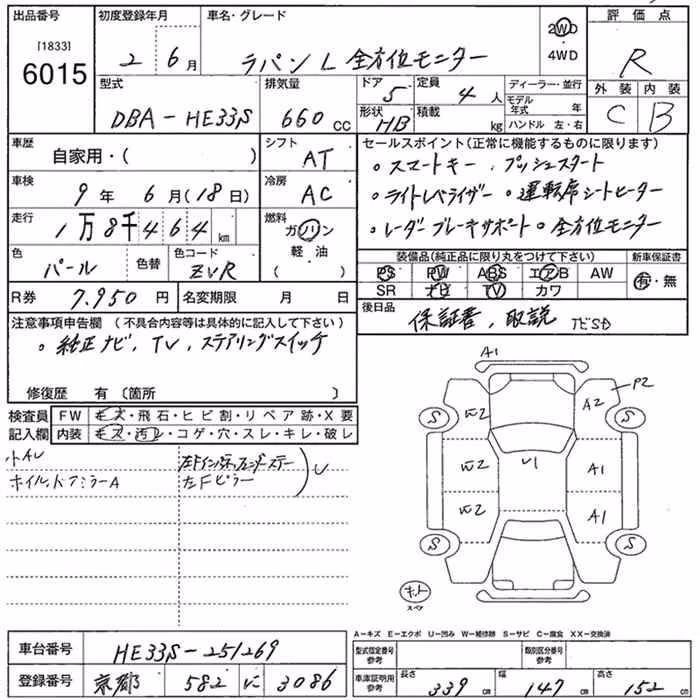 出品番号 初度登録年月 車名・グレード 評価点
[1833]
6015 2 6月 ラパン L 全方位モニター 2WD ・ 4WD R
型式 排気量 ドア 定員 ディーラー・並行 外装 内装
DBA-HE33S 660cc 5 4人 モデル年式 年 C B
形状 積載 HB kg ハンドル 左・右
車歴 自家用・( ) シフト AT
セールスポイント(正常に機能するものに限ります)
。スマートキー。プッシュスタート
車検 9年 6月(18日) 冷房 AC
。ライトレベライザー 。運転席シートヒーター
走行 1万8千464km 燃料 ガソリン 軽・油 ( )
。レーダーブレーキサポート 。全方位モニター
色 パール 色替 色コード ZVR
装備品(純正品に限り丸をつけて下さい) 新車保証書
PS PW ABS エアB AW 有・無
SR ナビ TV カワ
R券 7.950円 名変期限 月 日
後日品 保証書、取説
注意事項申告欄 (不具合内容等は具体的に記入して下さい)
。純正ナビ、TV、ステアリングスイッチ
修復歴 有 (箇所 )
検査員 FW キズ・飛石・ヒビ割・リペア跡・X要
記入欄 内装 キズ・汚レ・コゲ・穴・スレ・キレ・破レ
小AU
左Fピラー
U
A1
W2 A2 P2
S S
W2 U1 A1
W2 A1
S S
ホット
スペア
A−キズ E−エクボ U−凹み W−補修跡 S−サビ C−腐食 XX−交換済
車台番号 HE33S-251269
型式指定番号 参考 類別区分番号 参考
登録番号 京都 582 に 3086
車庫証明用 参考 長さ 339cm 幅 147cm 高さ 152cm